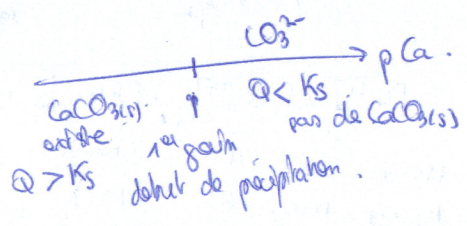 CO₃²⁻
pCa.
CaCO₃(s). existe
Q > Ks
1er grain
début de précipitation.
Q < Ks
pas de CaCO₃(s)